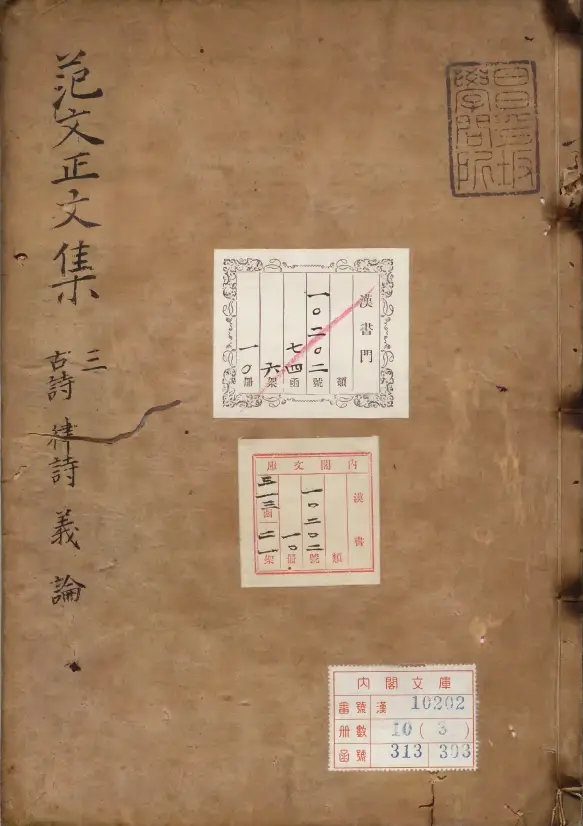 范文正文集
三
古詩 律詩 義 論
昌平坂
學問所
漢書門
類
一〇二〇二號
七四函
六架
一〇冊
內閣文庫
漢書
類
一〇二〇二號
一〇冊
三一三函 二一架
內閣文庫
番號 漢 10202
冊數 10 ( 3 )
函號 313 303